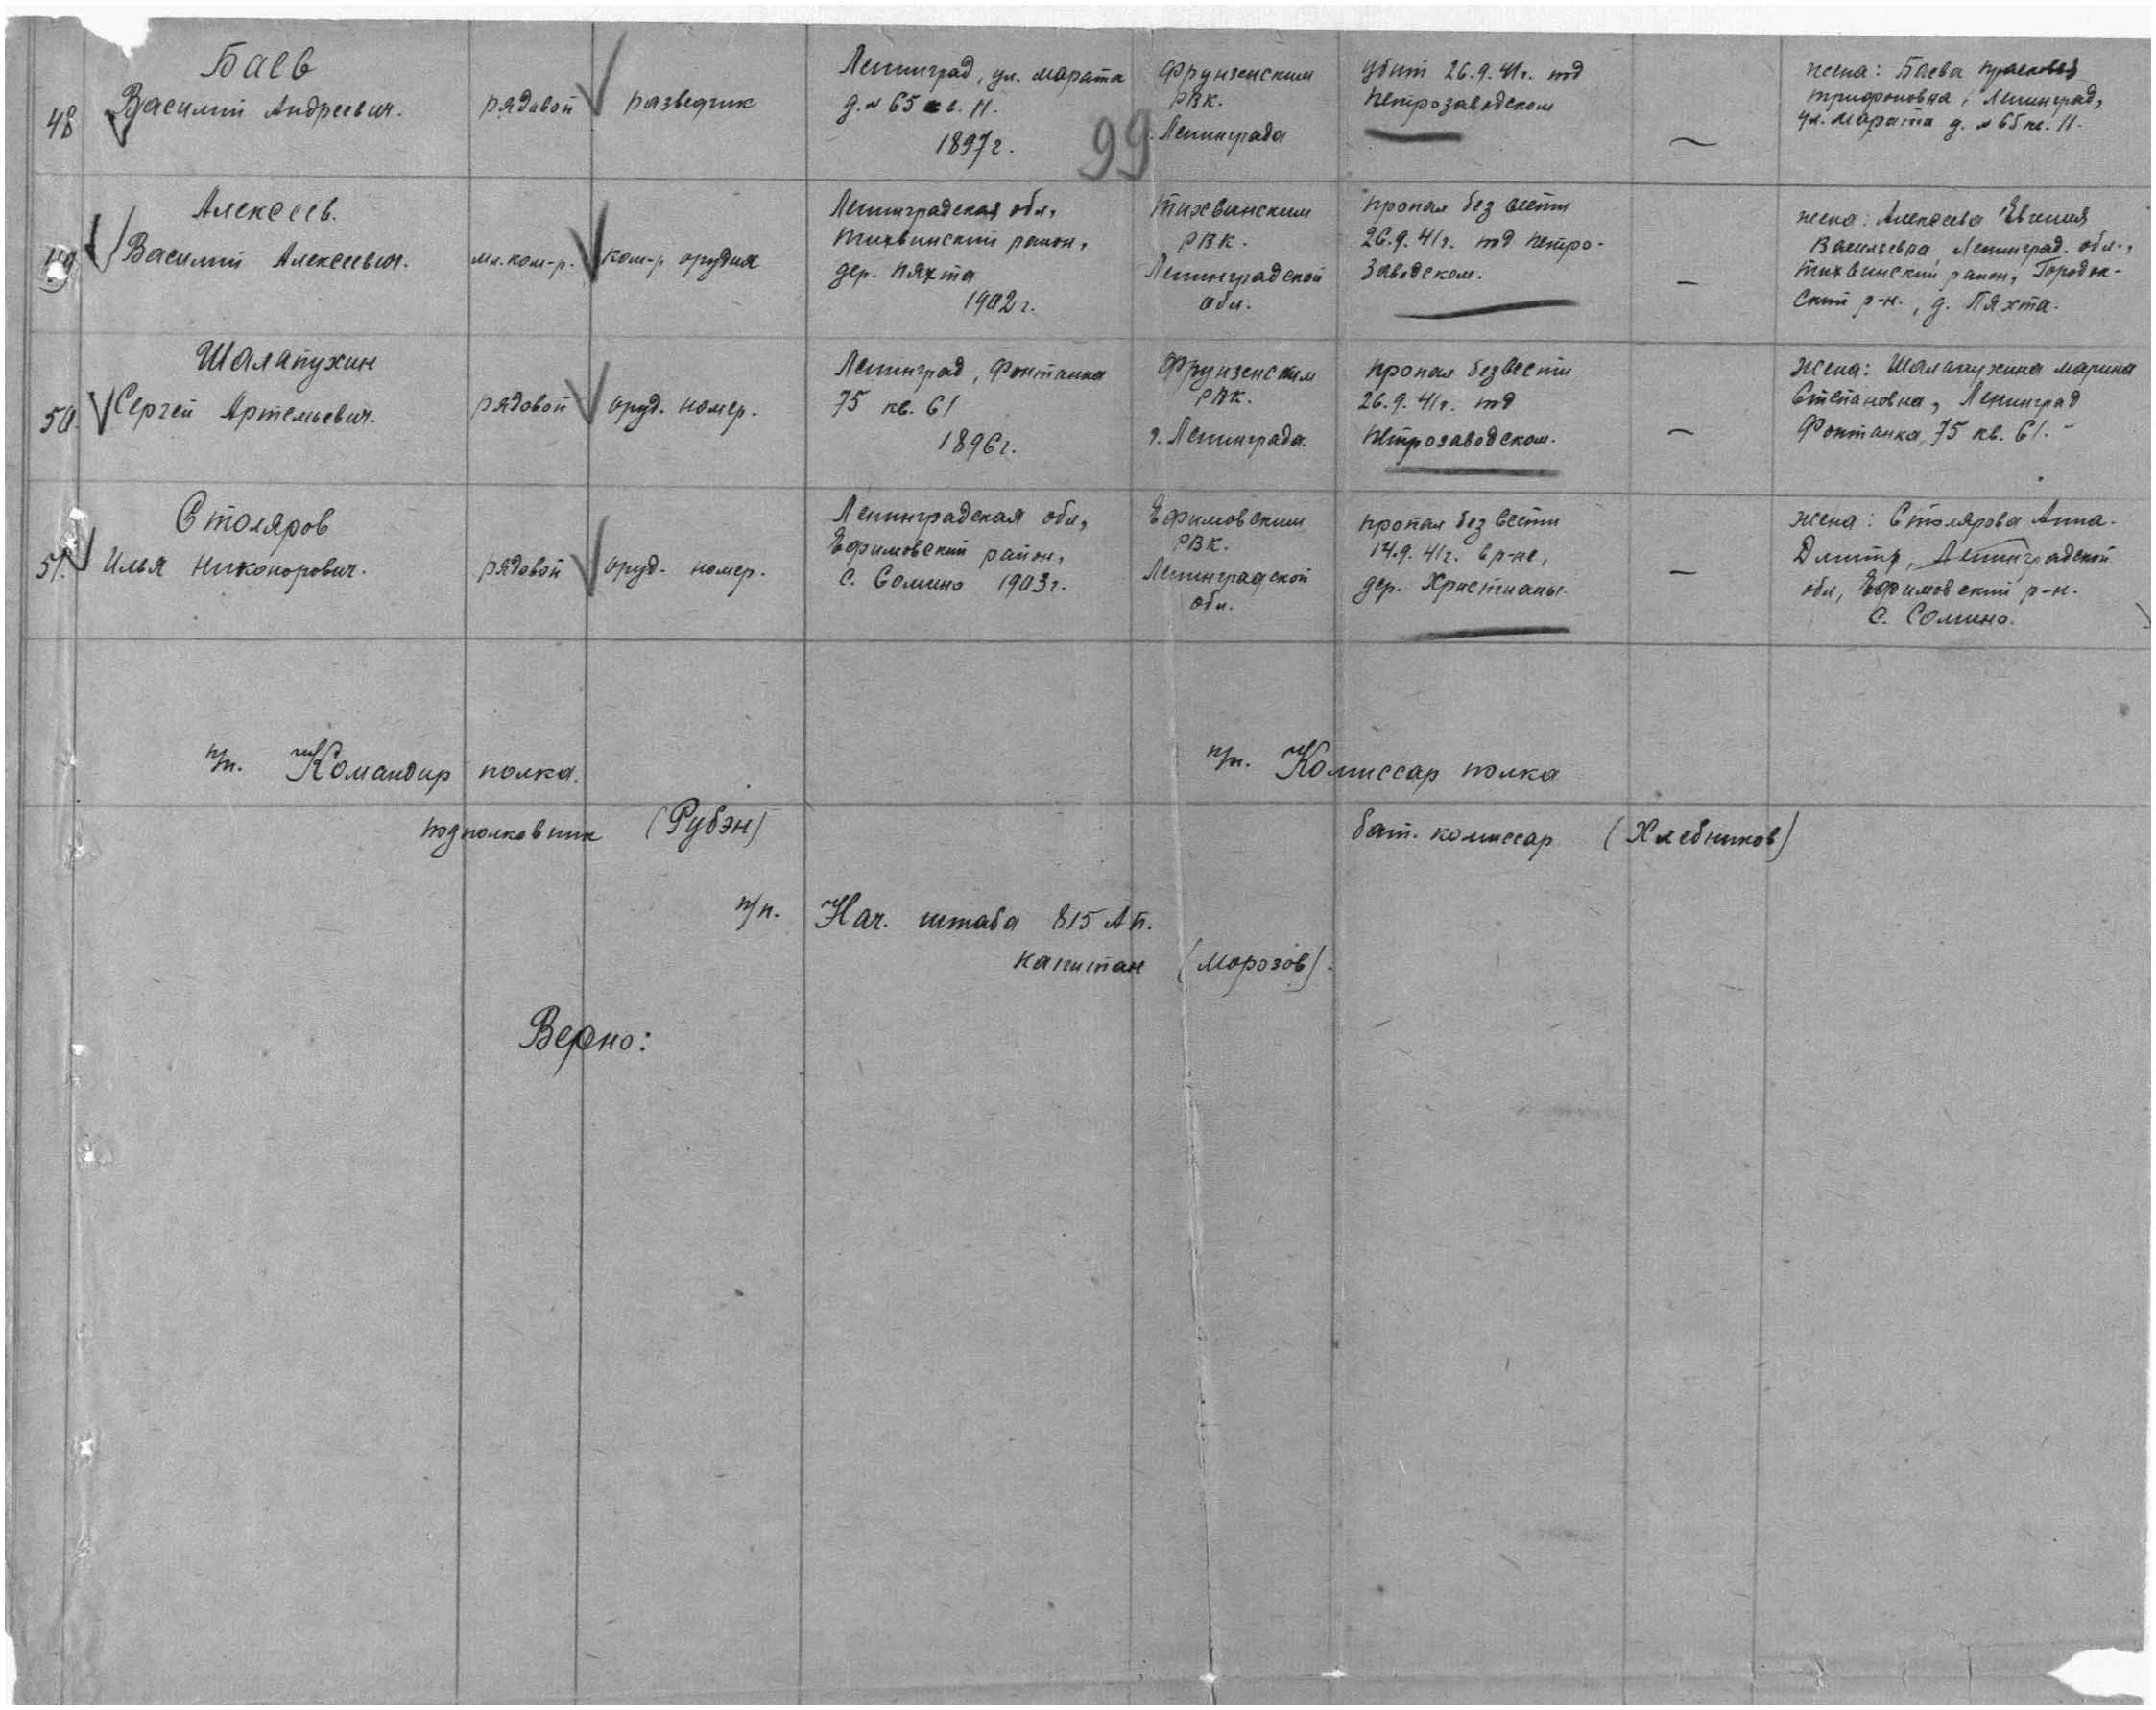 Баев
48 Василий Андреевич.
рядовой
разведчик
Ленинград, ул. Марата
д. № 65 кв. 11.
1897 г.
99
Фрунзенским
РВК.
Ленинграда
убит 26.9.41г. под
Петрозаводском
—
жена: Баева Прасковья
Трифоновна, Ленинград,
ул. Марата д. № 65 кв. 11.
Алексеев.
49 Василий Алексеевич.
мл. ком-р.
ком-р орудия
Ленинградская обл,
Тихвинский район,
дер. Пяхта
1902 г.
Тихвинским
РВК.
Ленинградской
обл.
пропал без вести
26.9.41г. под Петро-
заводском.
—
жена: Алексеева Евгения
Васильевна, Ленинград. обл.,
Тихвинский район, Городок-
ский р-н., д. Пяхта.
Шалапухин
50. Сергей Артемьевич.
рядовой
оруд. номер.
Ленинград, Фонтанка
75 кв. 61
1896г.
Фрунзенским
РВК.
г. Ленинграда.
пропал без вести
26.9.41г. под
Петрозаводском.
—
жена: Шалапухина Марина
Степановна, Ленинград
Фонтанка, 75 кв. 61.
Столяров
51. Илья Никонорович.
рядовой
оруд. номер.
Ленинградская обл,
Ефимовский район,
с. Сомино 1903г.
Ефимовским
РВК.
Ленинградской
обл.
пропал без вести
14.9.41г. в р-не,
дер. Христианы.
—
жена: Столярова Анна.
Дмитр, Ленинградской
обл, Ефимовский р-н.
с. Сомино.
п/п. Командир полка.
подполковник (Рубэн)
п/п. Комиссар полка
бат. комиссар (Хлебников)
п/п. Нач. штаба 815 АП.
капитан (Морозов).
Верно: